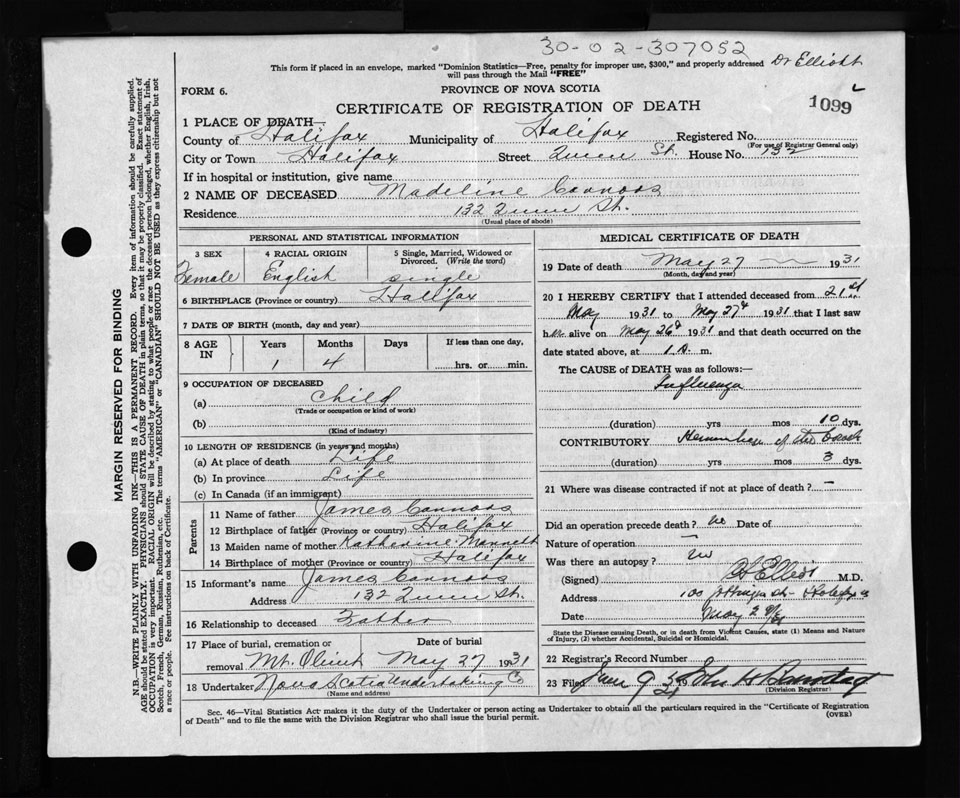 30-02-307052
This form if placed in an envelope, marked "Dominion Statistics—Free, penalty for improper use, $300," and properly addressed Dr Elliott
will pass through the Mail "FREE"
FORM 6.
PROVINCE OF NOVA SCOTIA
CERTIFICATE OF REGISTRATION OF DEATH
1099
1 PLACE OF DEATH—
County of Halifax Municipality of Halifax Registered No.
(For use of Registrar General only)
City or Town Halifax Street St. House No. 132
If in hospital or institution, give name
2 NAME OF DECEASED Madeline Connors
Residence 132 St.
(Usual place of abode)
PERSONAL AND STATISTICAL INFORMATION
3 SEX 4 RACIAL ORIGIN 5 Single, Married, Widowed or
Divorced. (Write the word)
Female English single
6 BIRTHPLACE (Province or country) Halifax
7 DATE OF BIRTH (month, day and year)
8 AGE IN Years Months Days If less than one day,
1 4 hrs. or min.
9 OCCUPATION OF DECEASED
(a) Child
(Trade or occupation or kind of work)
(b)
(Kind of industry)
10 LENGTH OF RESIDENCE (in years and months)
(a) At place of death Life
(b) In province Life
(c) In Canada (if an immigrant)
Parents
11 Name of father James Connors
12 Birthplace of father (Province or country) Halifax
13 Maiden name of mother Katherine
14 Birthplace of mother (Province or country) Halifax
15 Informant's name James Connors
Address 132 St.
16 Relationship to deceased Father
17 Place of burial, cremation or Date of burial
removal Mt. Olivet May 27 1931
18 Undertaker Nova Scotia Undertaking Co
(Name and address)
MEDICAL CERTIFICATE OF DEATH
19 Date of death May 27 1931
(Month, day and year)
20 I HEREBY CERTIFY that I attended deceased from 21st
May 1931 to May 27th 1931 that I last saw
her alive on May 26th 1931 and that death occurred on the
date stated above, at 1 A. m.
The CAUSE of DEATH was as follows:—
Influenza
(duration) yrs mos 10 dys.
CONTRIBUTORY of the
(duration) yrs mos 3 dys.
21 Where was disease contracted if not at place of death? —
Did an operation precede death? No Date of
Nature of operation —
Was there an autopsy? No
(Signed) Elliott M.D.
Address 100
Date May
State the Disease causing Death, or in death from Violent Causes, state (1) Means and Nature
of Injury, (2) whether Accidental, Suicidal or Homicidal.
22 Registrar's Record Number
23 Filed 9 19 John
(Division Registrar)
Sec. 46—Vital Statistics Act makes it the duty of the Undertaker or person acting as Undertaker to obtain all the particulars required in the "Certificate of Registration
of Death" and to file the same with the Division Registrar who shall issue the burial permit.
(OVER)
MARGIN RESERVED FOR BINDING
N.B.—WRITE PLAINLY WITH UNFADING INK—THIS IS A PERMANENT RECORD. Every item of information should be carefully supplied.
AGE should be stated EXACTLY. PHYSICIANS should STATE CAUSE OF DEATH in plain terms, so that it may be properly classified. Exact statement of
OCCUPATION is very important. RACIAL ORIGIN will be described by stating to what people or race the deceased person belonged, whether English, Irish,
Scotch, French, German, Russian, Ruthenian, etc. The terms "AMERICAN" or "CANADIAN" SHOULD NOT BE USED as they express citizenship but not
a race or people. See instructions on back of Certificate.